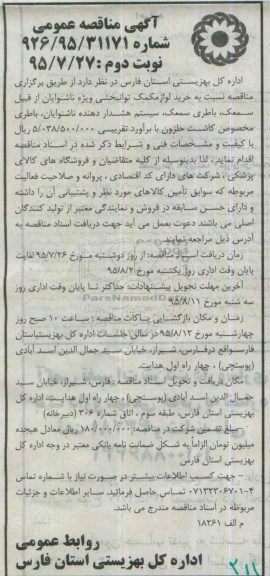 آگهی مناقصه عمومی
شماره ۹۲۶/۹۵/۳۱۱۷۱
نوبت دوم : ۹۵/۷/۲۷
اداره کل بهزیستی استان فارس در نظر دارد از طریق برگزاری
مناقصه نسبت به خرید لوازم‌کمک توانبخشی ویژه ناشنوایان از قبیل
سمعک، باطری سمعک، سیستم هشدار دهنده ناشنوایان، باطری
مخصوص کاشت حلزون با برآورد تقریبی ۵/۰۳۸/۵۰۰/۰۰۰ ریال
با کیفیت و مشخصات فنی و شرایط ذکر شده در اسناد مناقصه
اقدام نماید، لذا بدینوسیله از کلیه متقاضیان و فروشگاه های کالای
پزشکی ، شرکت های دارای کد اقتصادی ، پروانه و صلاحیت فعالیت
مربوطه که سوابق تأمین کالاهای مورد نظر و پشتیبانی آن را داشته
و دارای حسن سابقه در فروش و نمایندگی معتبر از تولید کنندگان
اصلی می باشند دعوت بعمل می آید جهت دریافت اسناد مناقصه به
آدرس ذیل مراجعه نمایند.
زمان دریافت اسناد مناقصه: از روز دوشنبه مورخ ۹۵/۷/۲۶ لغایت
پایان وقت اداری روز یکشنبه مورخ ۹۵/۸/۲
آخرین مهلت تحویل پیشنهادات: حداکثر تا پایان وقت اداری روز
سه شنبه مورخ ۹۵/۸/۱۱
زمان و مکان بازگشایی پاکات مناقصه : ساعت ۱۰ صبح روز
چهارشنبه مورخ ۹۵/۸/۱۲ در سالن جلسات اداره کل بهزیستی‌استان
فارس‌واقع درفارس، شیراز، خیابان سید جمال الدین اسد آبادی
(پوستچی) ، چهار راه اول هدایت.
مکان دریافت و تحویل اسناد مناقصه : فارس، شیراز، خیابان سید
جمال الدین اسد آبادی (پوستچی) ، چهار راه اول هدایت، اداره کل
بهزیستی استان فارس، طبقه سوم ، اتاق شماره ۳۰۶ (دبیرخانه)
مبلغ تضمین شرکت در مناقصه: ۱۸۰/۰۰۰/۰۰۰ ریال معادل هیجده
میلیون تومان الزاماً به شکل ضمانت نامه بانکی معتبر در وجه اداره کل
بهزیستی استان فارس
- جهت کسب اطلاعات بیشتر در صورت نیاز با شماره تماس
۰۷۱۳۲۳۰۶۷۰۱-۴ تماس حاصل فرمائید. سایر اطلاعات و جزئیات
مربوطه در اسناد مناقصه مندرج می باشد.
م الف ۱۸۲۶۱
روابط عمومی
اداره کل بهزیستی استان فارس
۲۱۱